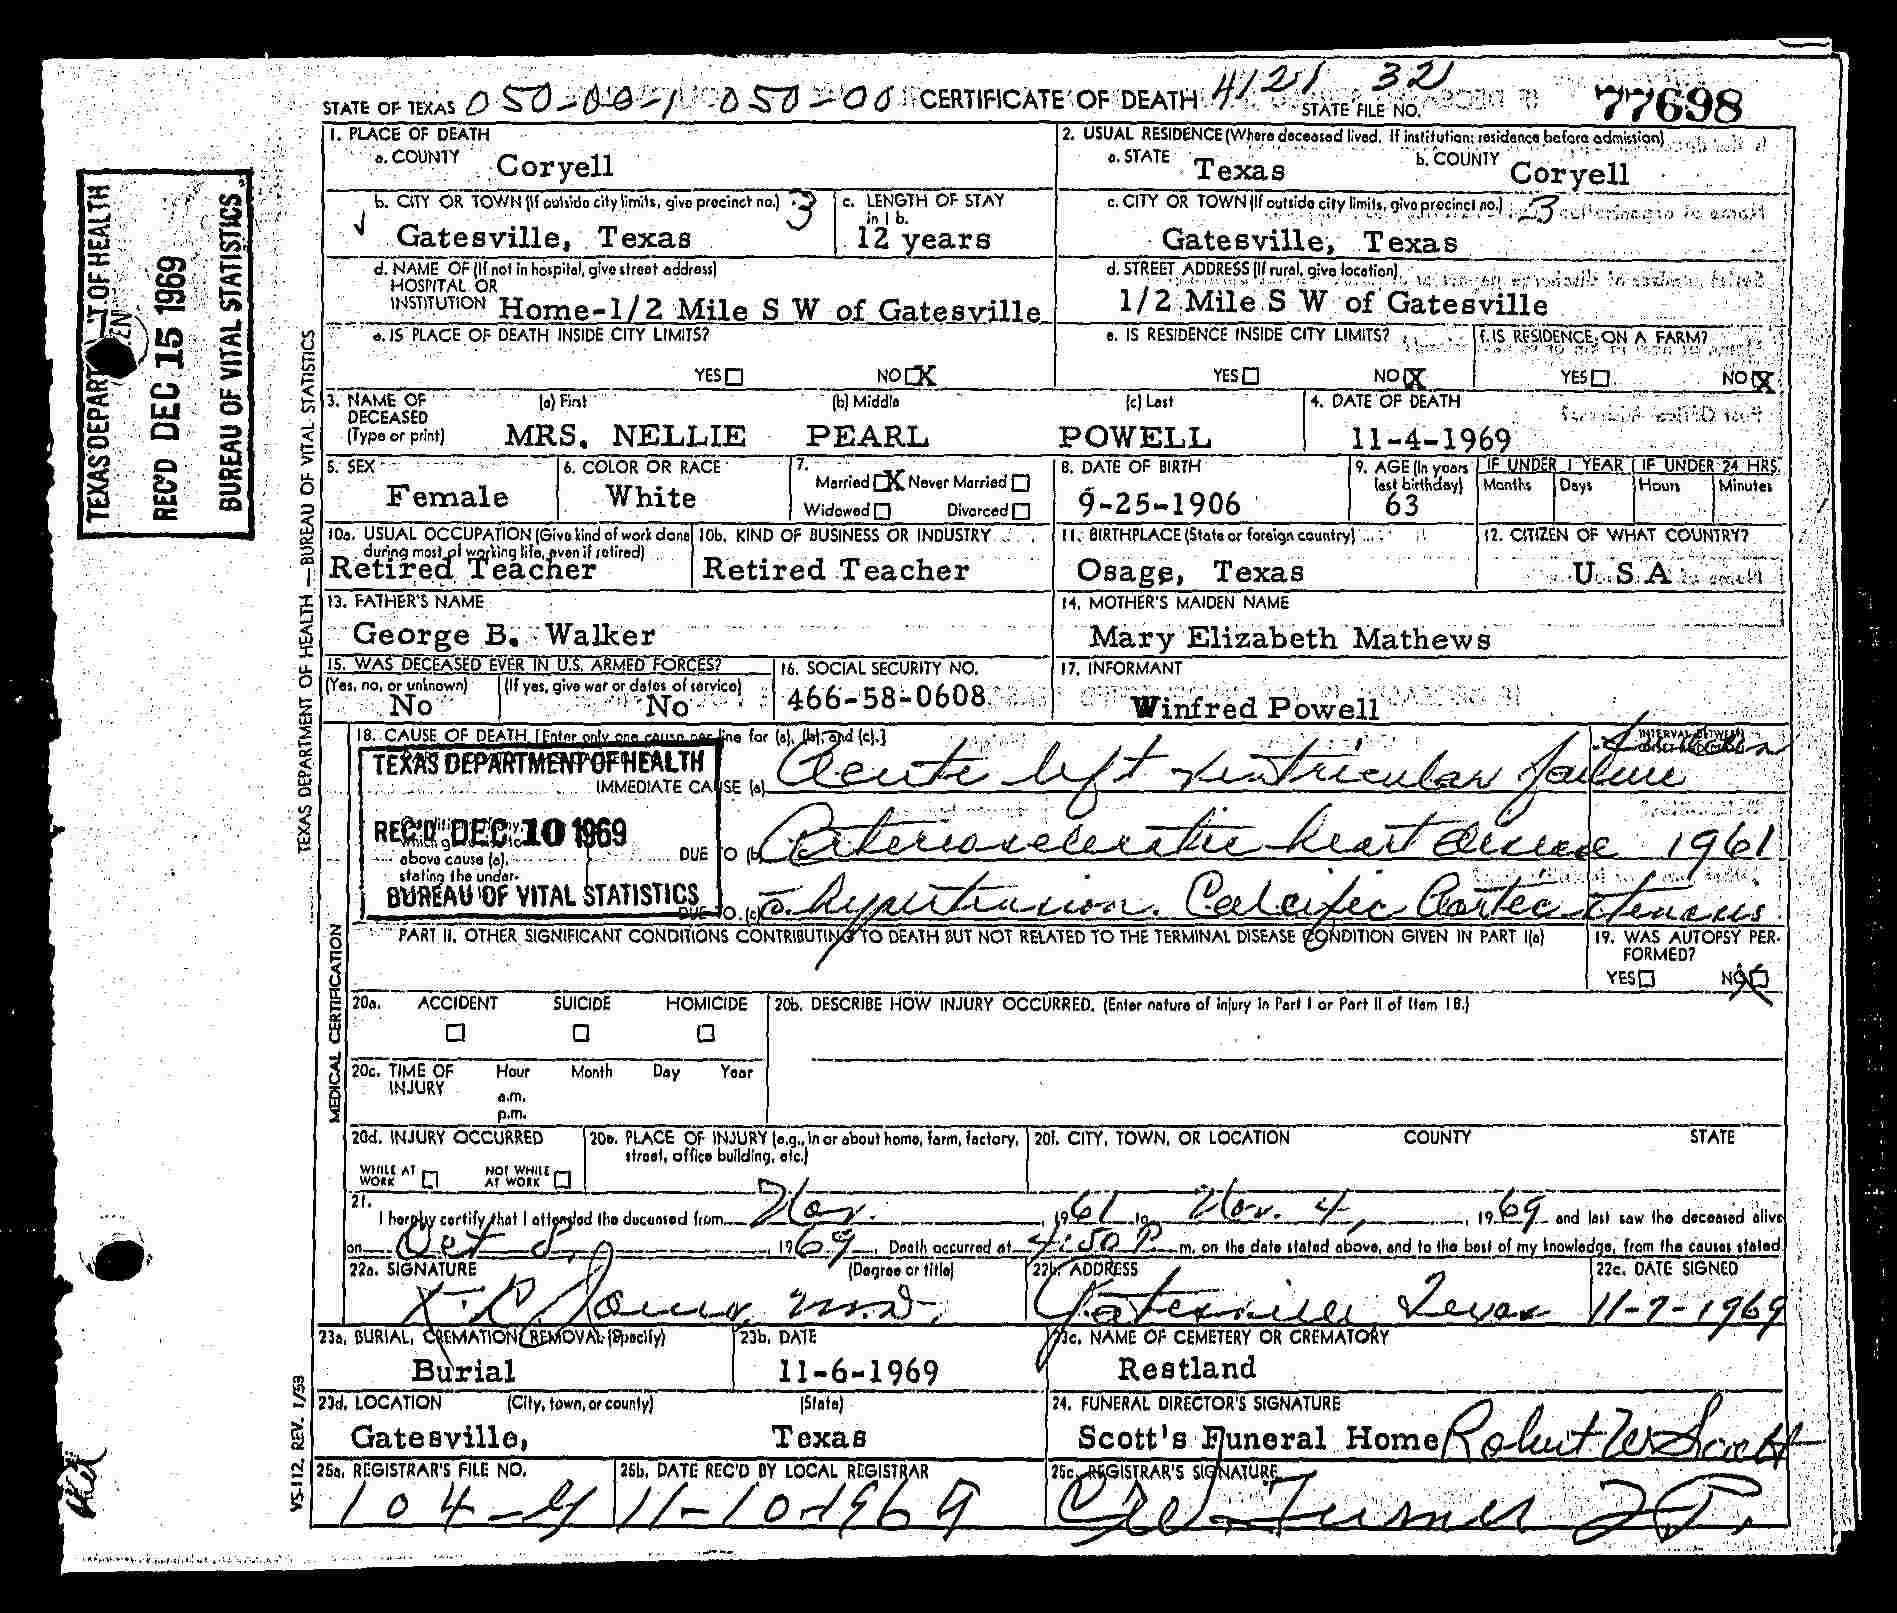 STATE OF TEXAS 050-00-1 050-00 CERTIFICATE OF DEATH 4121 32 STATE FILE NO. 77698
1. PLACE OF DEATH
a. COUNTY Coryell
2. USUAL RESIDENCE (Where deceased lived. If institution: residence before admission)
a. STATE Texas b. COUNTY Coryell
b. CITY OR TOWN (If outside city limits, give precinct no.) 3
Gatesville, Texas
c. LENGTH OF STAY in 1 b.
12 years
c. CITY OR TOWN (If outside city limits, give precinct no.) 3
Gatesville, Texas
d. NAME OF (If not in hospital, give street address)
HOSPITAL OR
INSTITUTION Home-1/2 Mile S W of Gatesville
d. STREET ADDRESS (If rural, give location)
1/2 Mile S W of Gatesville
e. IS PLACE OF DEATH INSIDE CITY LIMITS?
YES NO X
e. IS RESIDENCE INSIDE CITY LIMITS?
YES NO X
f. IS RESIDENCE ON A FARM?
YES NO X
3. NAME OF DECEASED (Type or print)
(a) First (b) Middle (c) Last
MRS. NELLIE PEARL POWELL
4. DATE OF DEATH
11-4-1969
5. SEX
Female
6. COLOR OR RACE
White
7.
Married X Never Married
Widowed Divorced
8. DATE OF BIRTH
9-25-1906
9. AGE (In years last birthday)
63
IF UNDER 1 YEAR IF UNDER 24 HRS.
Months Days Hours Minutes
10a. USUAL OCCUPATION (Give kind of work done during most of working life, even if retired)
Retired Teacher
10b. KIND OF BUSINESS OR INDUSTRY
Retired Teacher
11. BIRTHPLACE (State or foreign country)
Osage, Texas
12. CITIZEN OF WHAT COUNTRY?
U S A
13. FATHER'S NAME
George B. Walker
14. MOTHER'S MAIDEN NAME
Mary Elizabeth Mathews
15. WAS DECEASED EVER IN U.S. ARMED FORCES?
(Yes, no, or unknown) (If yes, give war or dates of service)
No No
16. SOCIAL SECURITY NO.
466-58-0608
17. INFORMANT
Winfred Powell
18. CAUSE OF DEATH [Enter only one cause per line for (a), (b), and (c).]
INTERVAL BETWEEN
IMMEDIATE CAUSE (a) Acute left ventricular failure
above cause (a),
stating the under-
DUE TO (b) Arteriosclerotic heart disease 1961
DUE TO (c) hypertension. Calcific Aortic stenosis
TEXAS DEPARTMENT OF HEALTH
REC'D DEC 10 1969
BUREAU OF VITAL STATISTICS
PART II. OTHER SIGNIFICANT CONDITIONS CONTRIBUTING TO DEATH BUT NOT RELATED TO THE TERMINAL DISEASE CONDITION GIVEN IN PART I(a)
19. WAS AUTOPSY PERFORMED?
YES NO X
20a. ACCIDENT SUICIDE HOMICIDE
20b. DESCRIBE HOW INJURY OCCURRED. (Enter nature of injury in Part I or Part II of item 18.)
20c. TIME OF INJURY Hour Month Day Year
a.m.
p.m.
20d. INJURY OCCURRED
WHILE AT WORK NOT WHILE AT WORK
20e. PLACE OF INJURY (e.g., in or about home, farm, factory, street, office building, etc.)
20f. CITY, TOWN, OR LOCATION COUNTY STATE
21.
I hereby certify that I attended the deceased from Nov. 1961 to Nov. 4, 1969 and last saw the deceased alive
on Oct 8, 1969. Death occurred at 4:50 P m. on the date stated above, and to the best of my knowledge, from the causes stated.
22a. SIGNATURE (Degree or title)
Jones, M.D.
22b. ADDRESS
Gatesville, Texas
22c. DATE SIGNED
11-7-1969
23a. BURIAL, CREMATION, REMOVAL (Specify)
Burial
23b. DATE
11-6-1969
23c. NAME OF CEMETERY OR CREMATORY
Restland
23d. LOCATION (City, town, or county) (State)
Gatesville, Texas
24. FUNERAL DIRECTOR'S SIGNATURE
Scott's Funeral Home Robert W Scott
25a. REGISTRAR'S FILE NO.
104-
25b. DATE REC'D BY LOCAL REGISTRAR
11-10-1969
25c. REGISTRAR'S SIGNATURE
Turner
TEXAS DEPARTMENT OF HEALTH
REC'D DEC 15 1969
BUREAU OF VITAL STATISTICS
TEXAS DEPARTMENT OF HEALTH — BUREAU OF VITAL STATISTICS
MEDICAL CERTIFICATION
VS-112, REV. 1/58